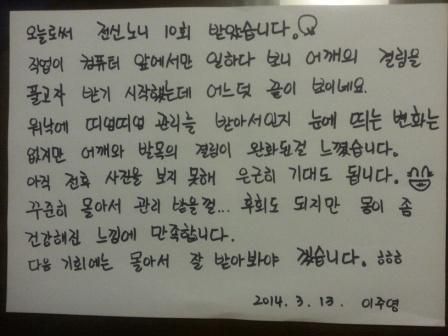 오늘로써 전신노니 10회 받았습니다.
직업이 컴퓨터 앞에서만 일하다 보니 어깨의 결림을
풀고자 받기 시작했는데 어느덧 끝이 보이네요.
워낙에 띠엄띠엄 관리를 받아서인지 눈에 띄는 변화는
없지만 어깨와 발목의 결림이 완화된걸 느꼈습니다.
아직 전후 사진을 보지 못해 은근히 기대도 됩니다.
꾸준히 몰아서 관리 받을껄... 후회도 되지만 몸이 좀
건강해진 느낌에 만족합니다.
다음 기회에는 몰아서 잘 받아봐야 겠습니다. ㅎㅎㅎ
2014. 3. 13. 이주영